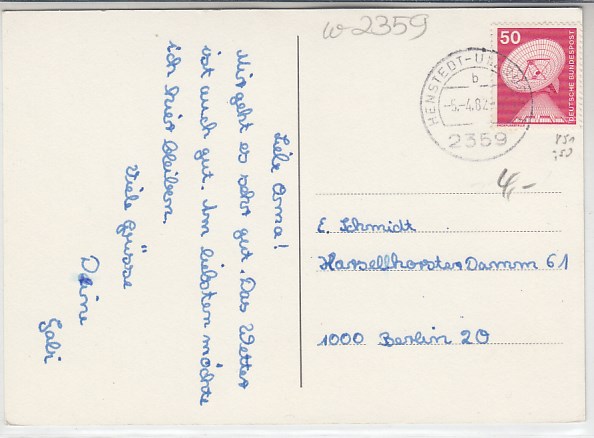 w 2359
50
DEUTSCHE BUNDESPOST
HENSTEDT-ULZBURG
b
-5.-4.82
2359
4,-
Liebe Oma!
Mir geht es sehr gut. Das Wetter
ist auch gut. Am liebsten möchte
ich hier bleiben.
Viele Grüsse
Deine
Gabi
E. Schmidt
Hasselhorster Damm 61
1000 Berlin 20